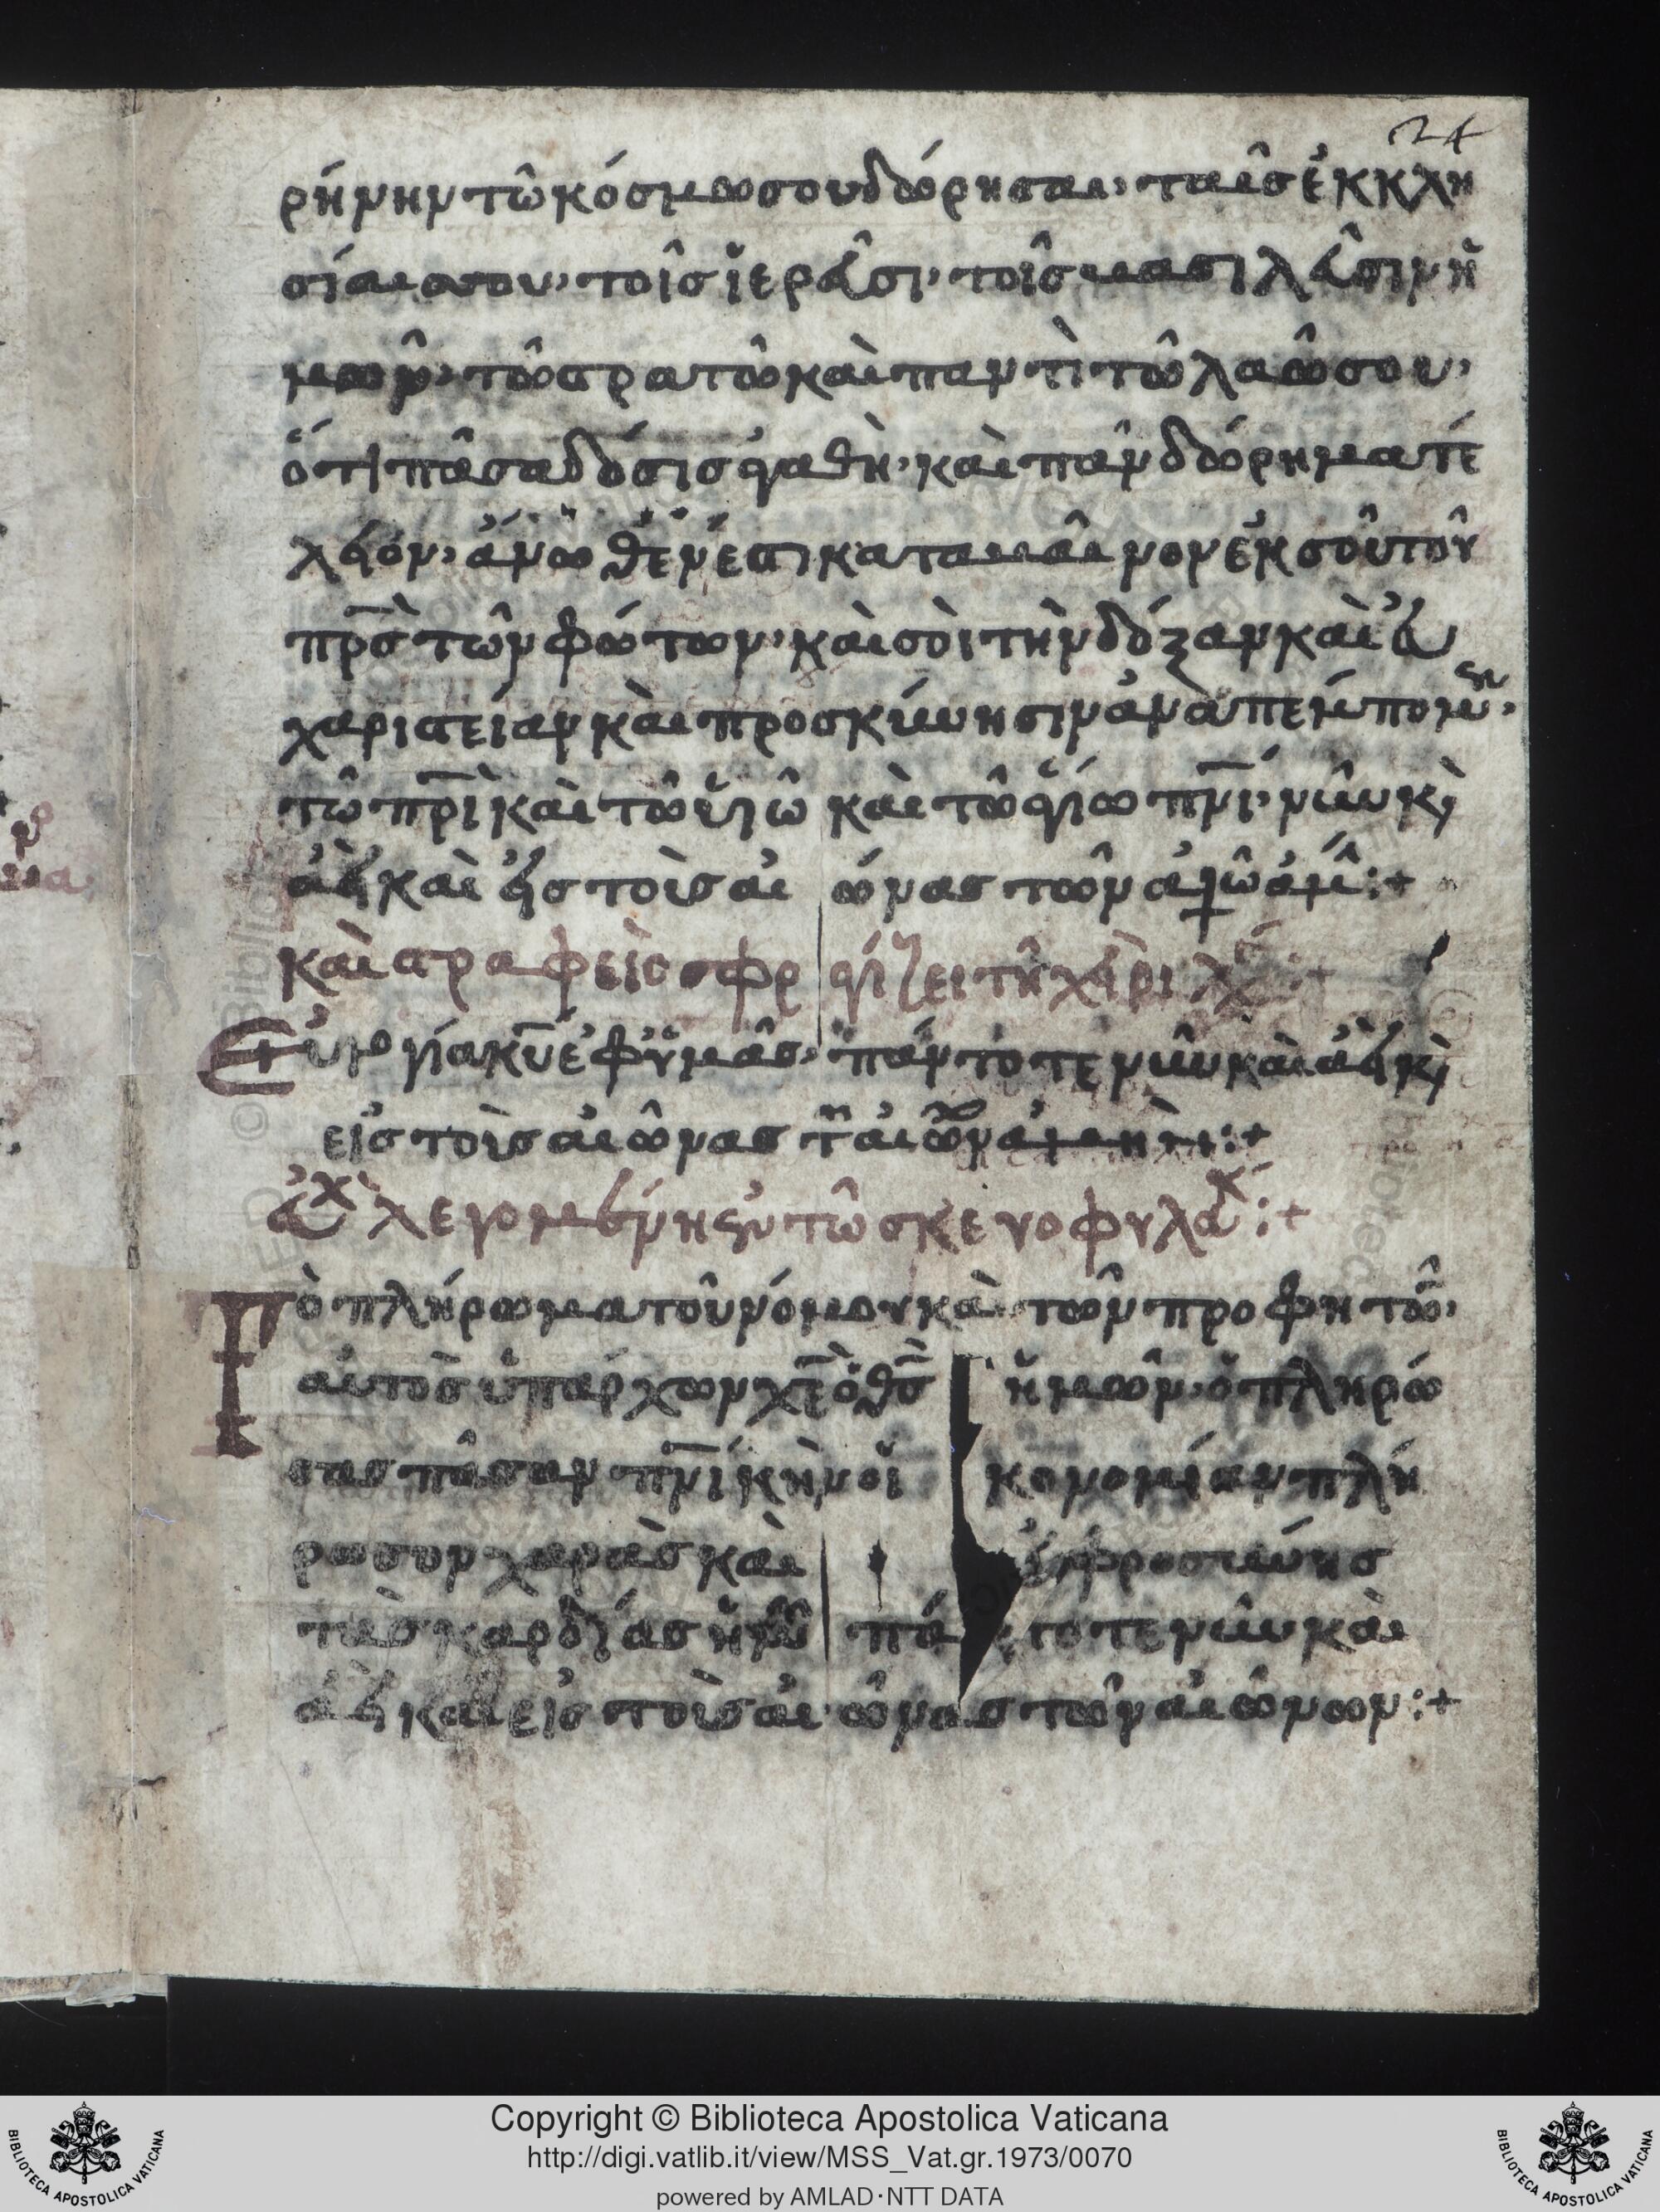 24
ρήνην τῶ κόσμω σου δώρησαι· ταῖς ἐκκλη
σίαις σου· τοῖς ἱερεῦσι· τοῖς βασιλεῦσιν ἡ
μῶν· τῶ στρατῶ καὶ παντὶ τῶ λαῶ σου·
ὅτι πᾶσα δόσις ἀγαθὴ· καὶ πᾶν δώρημα τέ
λειον· ἄνωθέν ἐστι καταβαῖνον ἐκ σοῦ τοῦ
πρ̅ς τῶν φώτων· καὶ σοὶ τὴν δόξαν καὶ εὐ
χαριστείαν καὶ προσκύνησιν ἀναπέμπομεν·
τῶ πρ̅ὶ καὶ τῶ υἱῶ καὶ τῶ ἁγίω πν̅ί· νῦν κ(αὶ)
ἀεὶ καὶ εἰς τοὺς αἰῶνας τῶν αἰώ ἀμ:+
καὶ στραφεὶς σφραγίζει τῇ χειρὶ λέγ:+
Εὐλογία κυ̅ ἐφ' ὑμᾶς· πάντοτε νῦν καὶ ἀεὶ κ(αὶ)
εἰς τοὺς αἰῶνας τῶν αἰών ἀμήν:+
εὐχ λεγομένη ἐν τῶ σκευοφυλακ:+
Τὸ πλήρωμα τοῦ νόμου καὶ τῶν προφητῶν·
αὐτὸς ὑπάρχων χε̅ ὁ θς̅ ἡμῶν· ὁ πληρώ
σας πᾶσαν πρ̅ικὴν οἰκονομίαν πλή
ρωσον χαρᾶς καὶ εὐφροσύνης
τὰς καρδίας ἡμῶν πάντοτε νῦν καὶ
ἀεὶ καὶ εἰς τοὺς αἰῶνας τῶν αἰώνων:+
Copyright © Biblioteca Apostolica Vaticana
http://digi.vatlib.it/view/MSS_Vat.gr.1973/0070
powered by AMLAD·NTT DATA
BIBLIOTECA APOSTOLICA VATICANA
BIBLIOTECA APOSTOLICA VATICANA